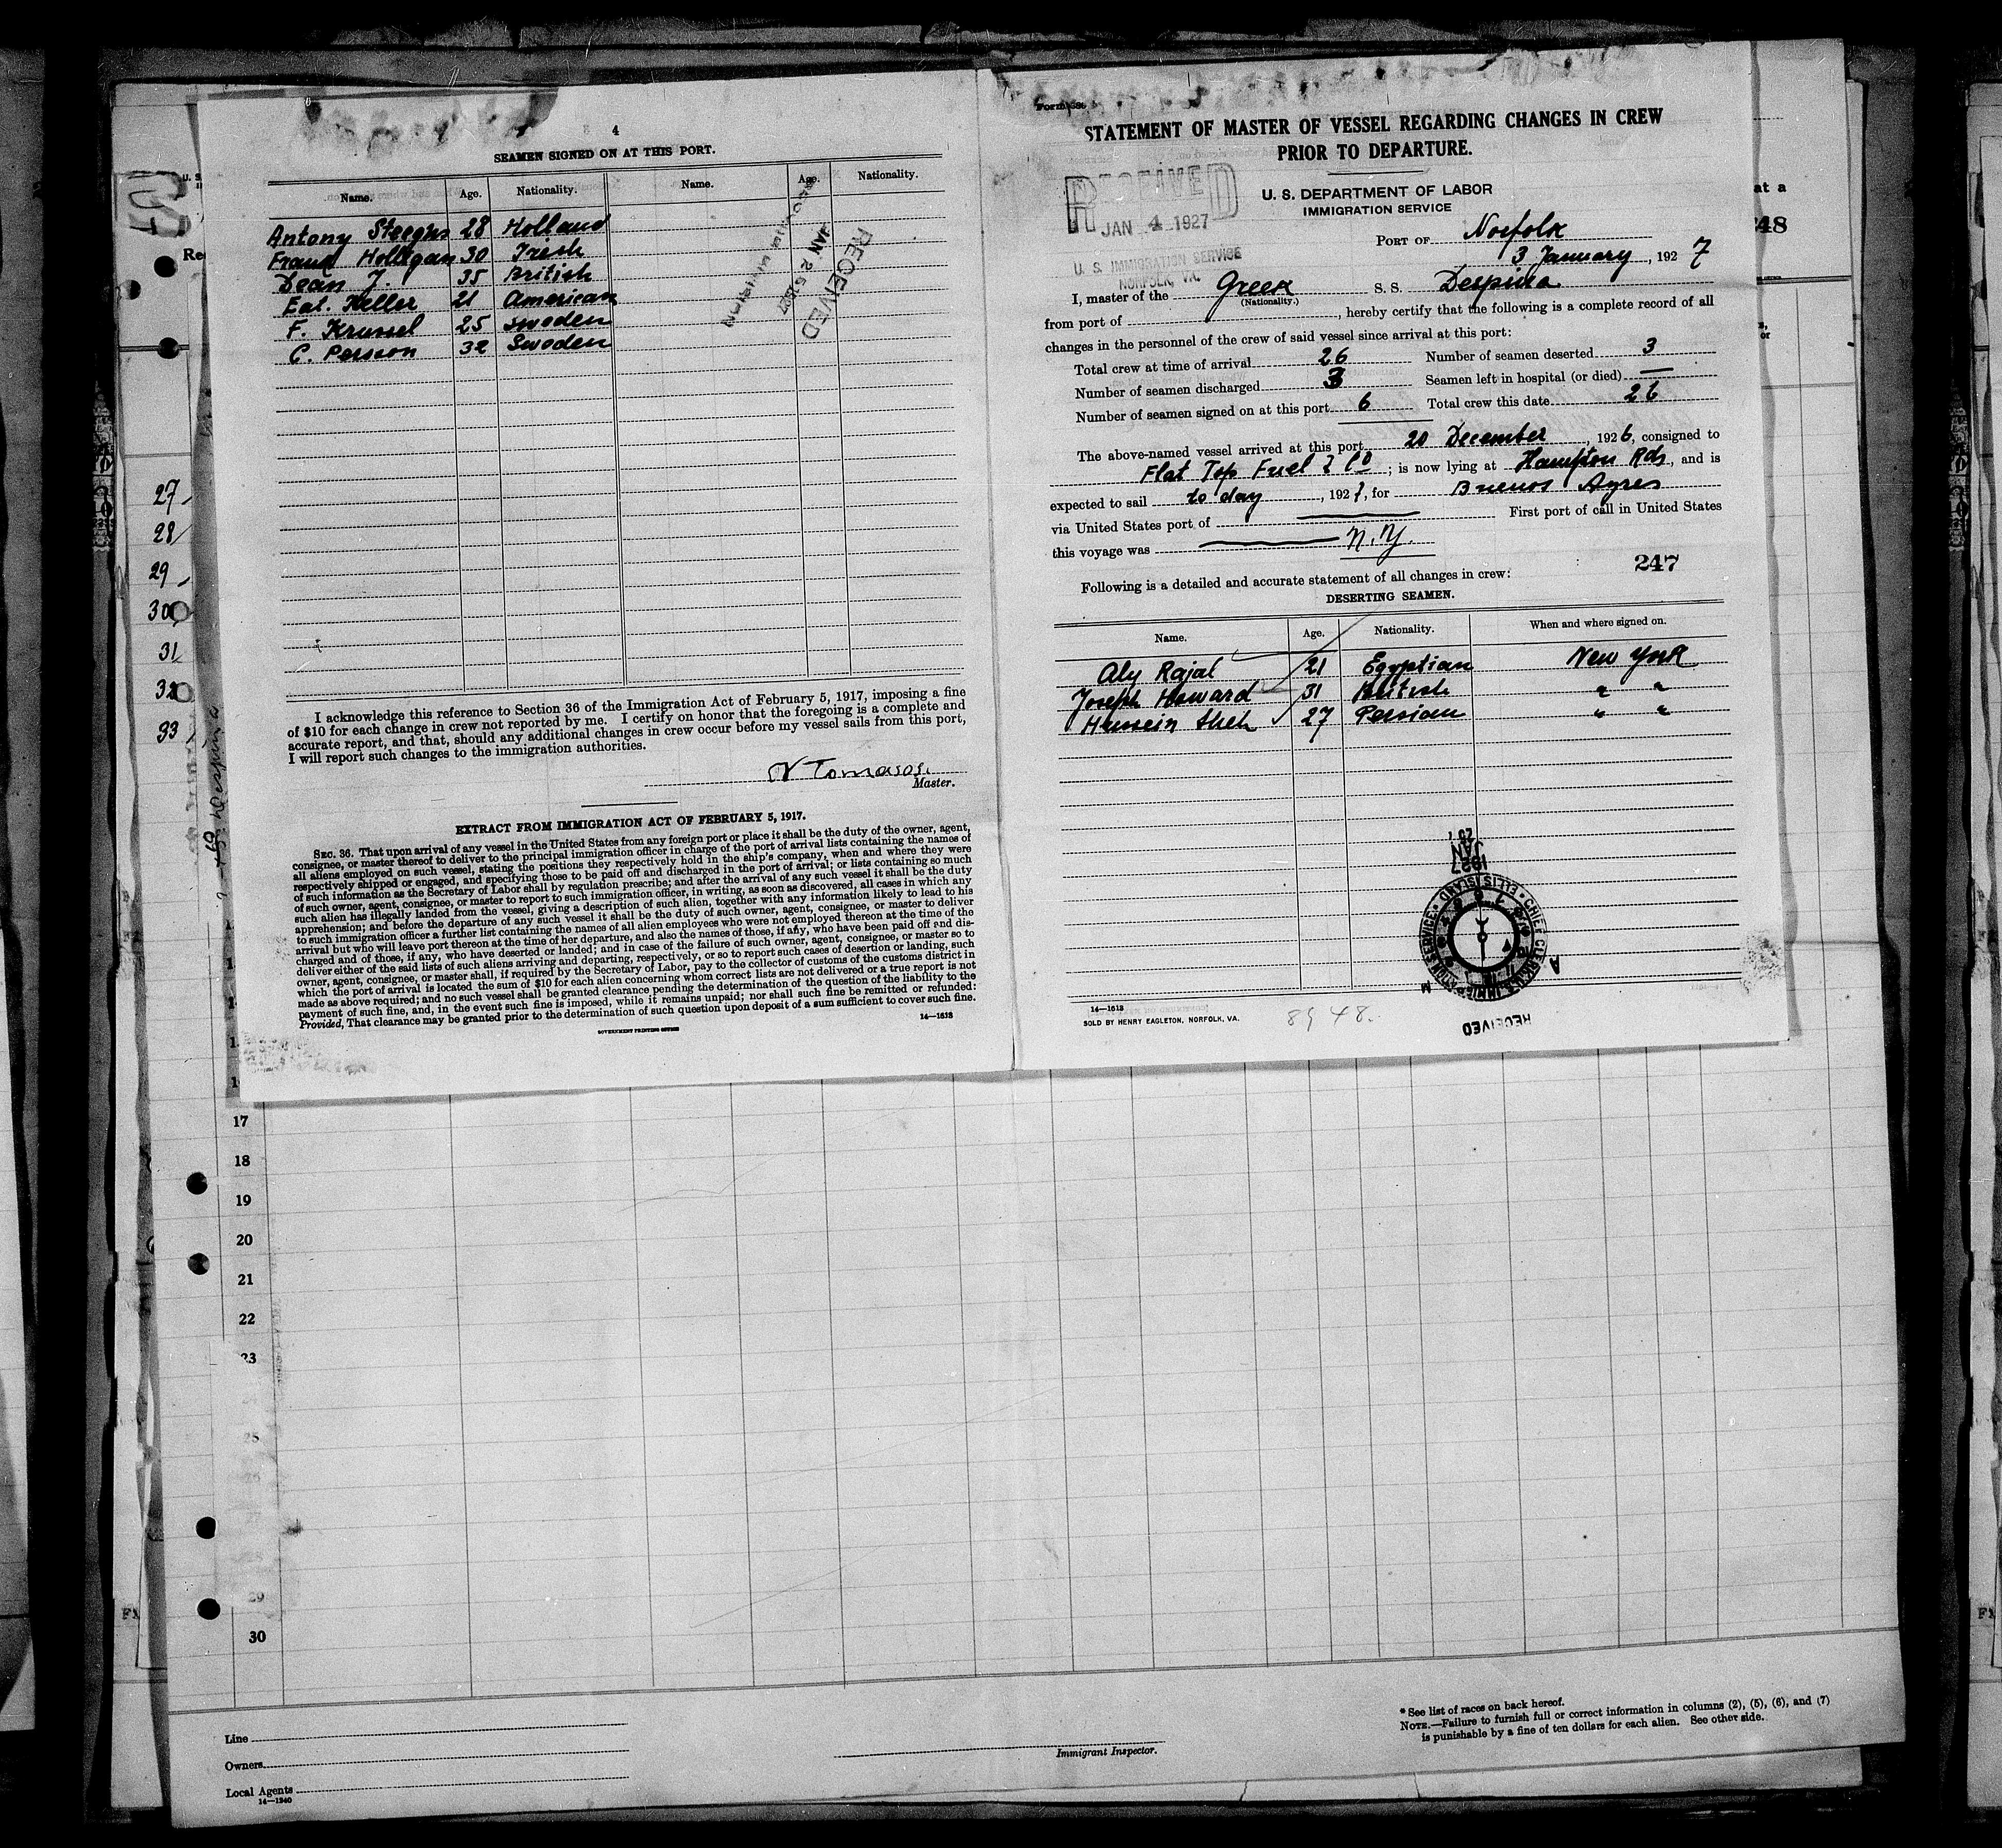 4
SEAMEN SIGNED ON AT THIS PORT.
Name. Age. Nationality. Name. Age. Nationality.
Antony 28 Holland
Frank Holligan 30 Irish
Dean J. 35 British
Keller 21 American
F. Krussel 25 Sweden
C. Persson 32 Sweden
RECEIVED
JAN 25 1927
I acknowledge this reference to Section 36 of the Immigration Act of February 5, 1917, imposing a fine
of $10 for each change in crew not reported by me. I certify on honor that the foregoing is a complete and
accurate report, and that, should any additional changes in crew occur before my vessel sails from this port,
I will report such changes to the immigration authorities.
N Tomasos.
Master.
EXTRACT FROM IMMIGRATION ACT OF FEBRUARY 5, 1917.
SEC. 36. That upon arrival of any vessel in the United States from any foreign port or place it shall be the duty of the owner, agent,
consignee, or master thereof to deliver to the principal immigration officer in charge of the port of arrival lists containing the names of
all aliens employed on such vessel, stating the positions they respectively hold in the ship's company, when and where they were
respectively shipped or engaged, and specifying those to be paid off and discharged in the port of arrival; or lists containing so much
of such information as the Secretary of Labor shall by regulation prescribe; and after the arrival of any such vessel it shall be the duty
of such owner, agent, consignee, or master to report to such immigration officer, in writing, as soon as discovered, all cases in which any
such alien has illegally landed from the vessel, giving a description of such alien, together with any information likely to lead to his
apprehension; and before the departure of any such vessel it shall be the duty of such owner, agent, consignee, or master to deliver
to such immigration officer a further list containing the names of all alien employees who were not employed thereon at the time of the
arrival but who will leave port thereon at the time of her departure, and also the names of those, if any, who have been paid off and dis-
charged and of those, if any, who have deserted or landed; and in case of the failure of such owner, agent, consignee, or master so to
deliver either of the said lists of such aliens arriving and departing, respectively, or so to report such cases of desertion or landing, such
owner, agent, consignee, or master shall, if required by the Secretary of Labor, pay to the collector of customs of the customs district in
which the port of arrival is located the sum of $10 for each alien concerning whom correct lists are not delivered or a true report is not
made as above required; and no such vessel shall be granted clearance pending the determination of the question of the liability to the
payment of such fine, and, in the event such fine is imposed, while it remains unpaid; nor shall such fine be remitted or refunded:
Provided, That clearance may be granted prior to the determination of such question upon deposit of a sum sufficient to cover such fine.
GOVERNMENT PRINTING OFFICE
14—1618
STATEMENT OF MASTER OF VESSEL REGARDING CHANGES IN CREW
PRIOR TO DEPARTURE.
U. S. DEPARTMENT OF LABOR
IMMIGRATION SERVICE
RECEIVED
JAN 4 1927
U. S. IMMIGRATION SERVICE
NORFOLK, VA.
PORT OF Norfolk
3 January, 1927
I, master of the Greek S. S. Despina
(Nationality.)
from port of , hereby certify that the following is a complete record of all
changes in the personnel of the crew of said vessel since arrival at this port:
Total crew at time of arrival 26 Number of seamen deserted 3
Number of seamen discharged 3 Seamen left in hospital (or died) —
Number of seamen signed on at this port 6 Total crew this date 26
The above-named vessel arrived at this port 20 December, 1926, consigned to
Flat Top Fuel & Co; is now lying at Hampton Rds, and is
expected to sail to day, 1927, for Buenos Ayres
via United States port of — First port of call in United States
this voyage was — N.Y.
247
Following is a detailed and accurate statement of all changes in crew:
DESERTING SEAMEN.
Name. Age. Nationality. When and where signed on.
Aly Rajal 21 Egyptian New York
Joseph Howard 31 British " "
Hussein 27 Persian " "
JAN
1927
CHIEF CLERK U.S. IMMIGRATION SERVICE ELLIS ISLAND
RECEIVED
14—1618
SOLD BY HENRY EAGLETON, NORFOLK, VA.
8948.
at a
248
27
28
29
30
31
32
33
17
18
19
20
21
22
23
25
29
30
Line
Owners
Local Agents
14—1240
Immigrant Inspector.
* See list of races on back hereof.
NOTE.—Failure to furnish full or correct information in columns (2), (5), (6), and (7)
is punishable by a fine of ten dollars for each alien. See other side.